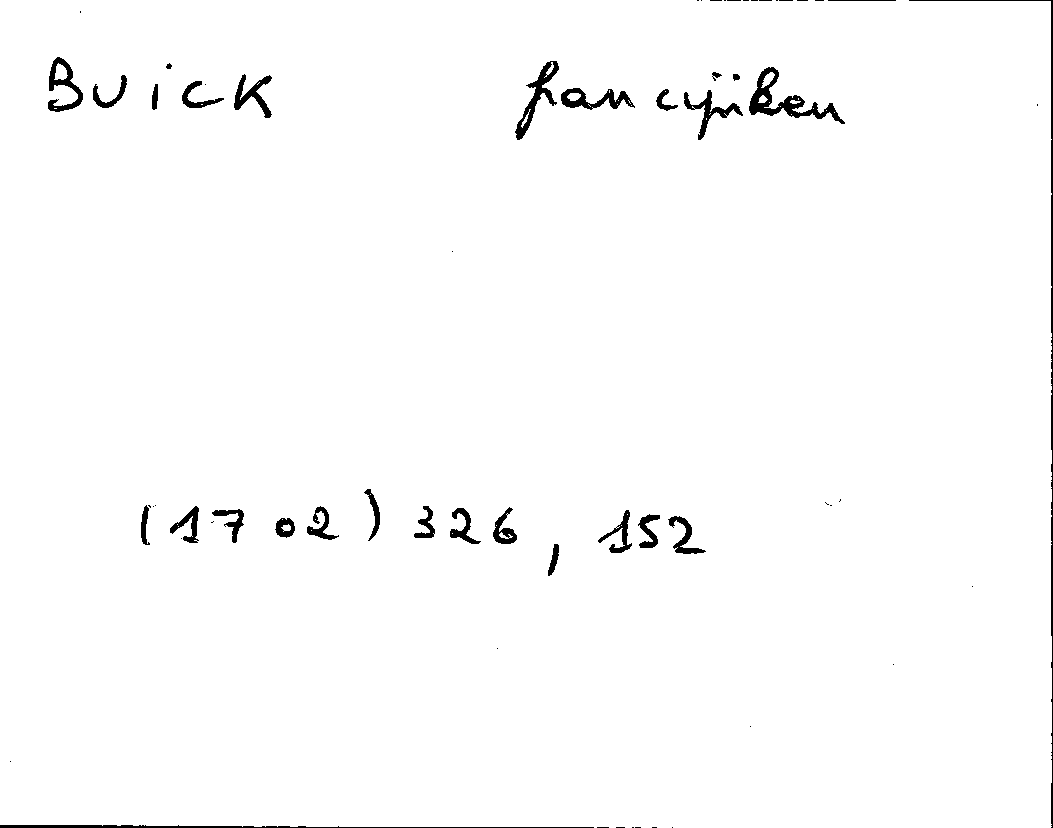 Buick francijnken
(1702) 326, 152